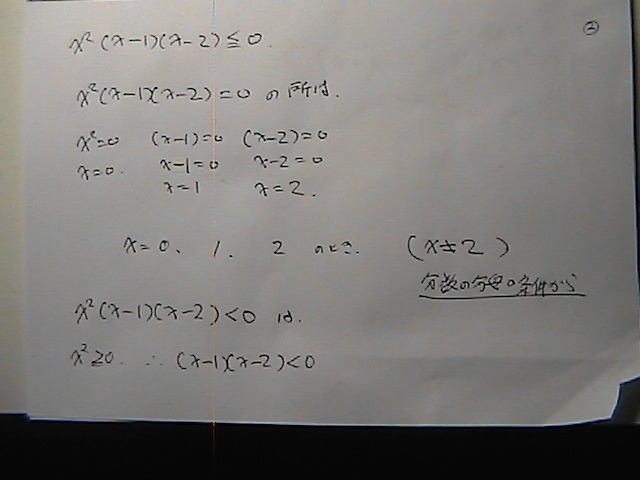 ②
x²(x-1)(x-2)≦0.
x²(x-1)(x-2)=0 の所は.
x²=0 (x-1)=0 (x-2)=0
x=0. x-1=0 x-2=0
x=1 x=2.
x=0. 1. 2 のとき. (x≠2)
分数の分母の条件から
x²(x-1)(x-2)<0 は.
x²≧0. ∴ (x-1)(x-2)<0